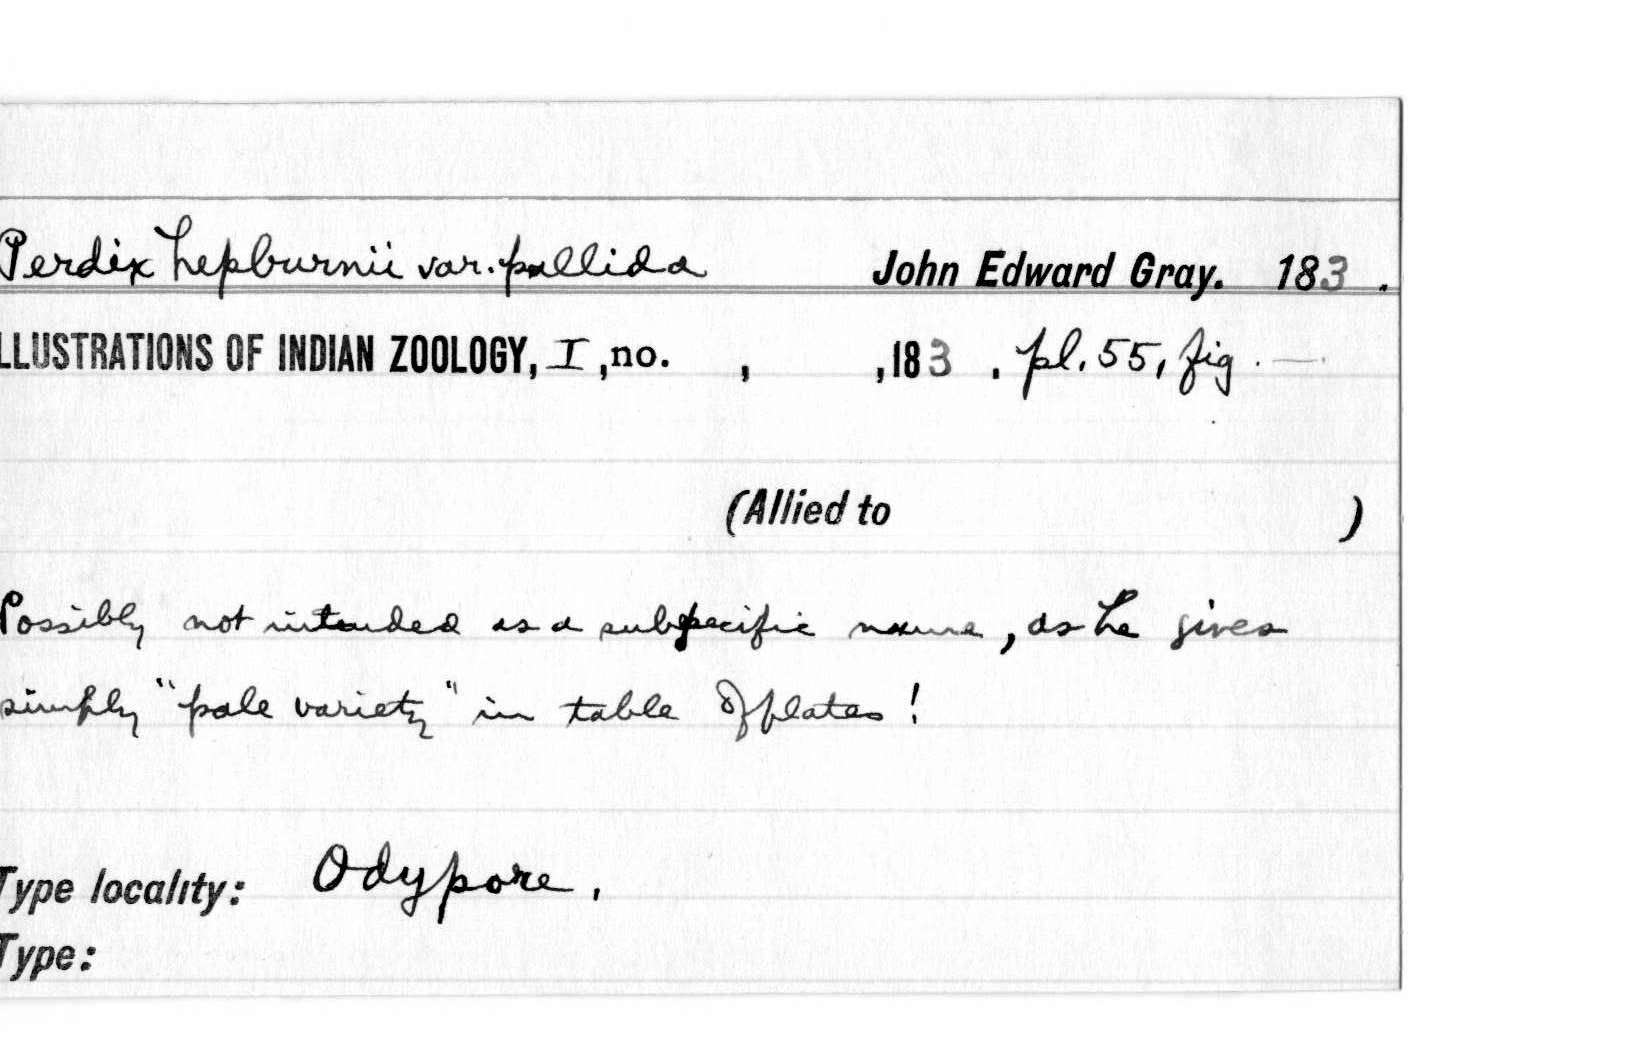 Perdix hepburnii var. pallida John Edward Gray. 183 .
LLUSTRATIONS OF INDIAN ZOOLOGY, I, no. , ,183 . pl. 55, fig. —.
(Allied to )
Possibly not intended as a subspecific name, as he gives
simply "pale variety" in table of plates!
Type locality: Odypore.
Type: